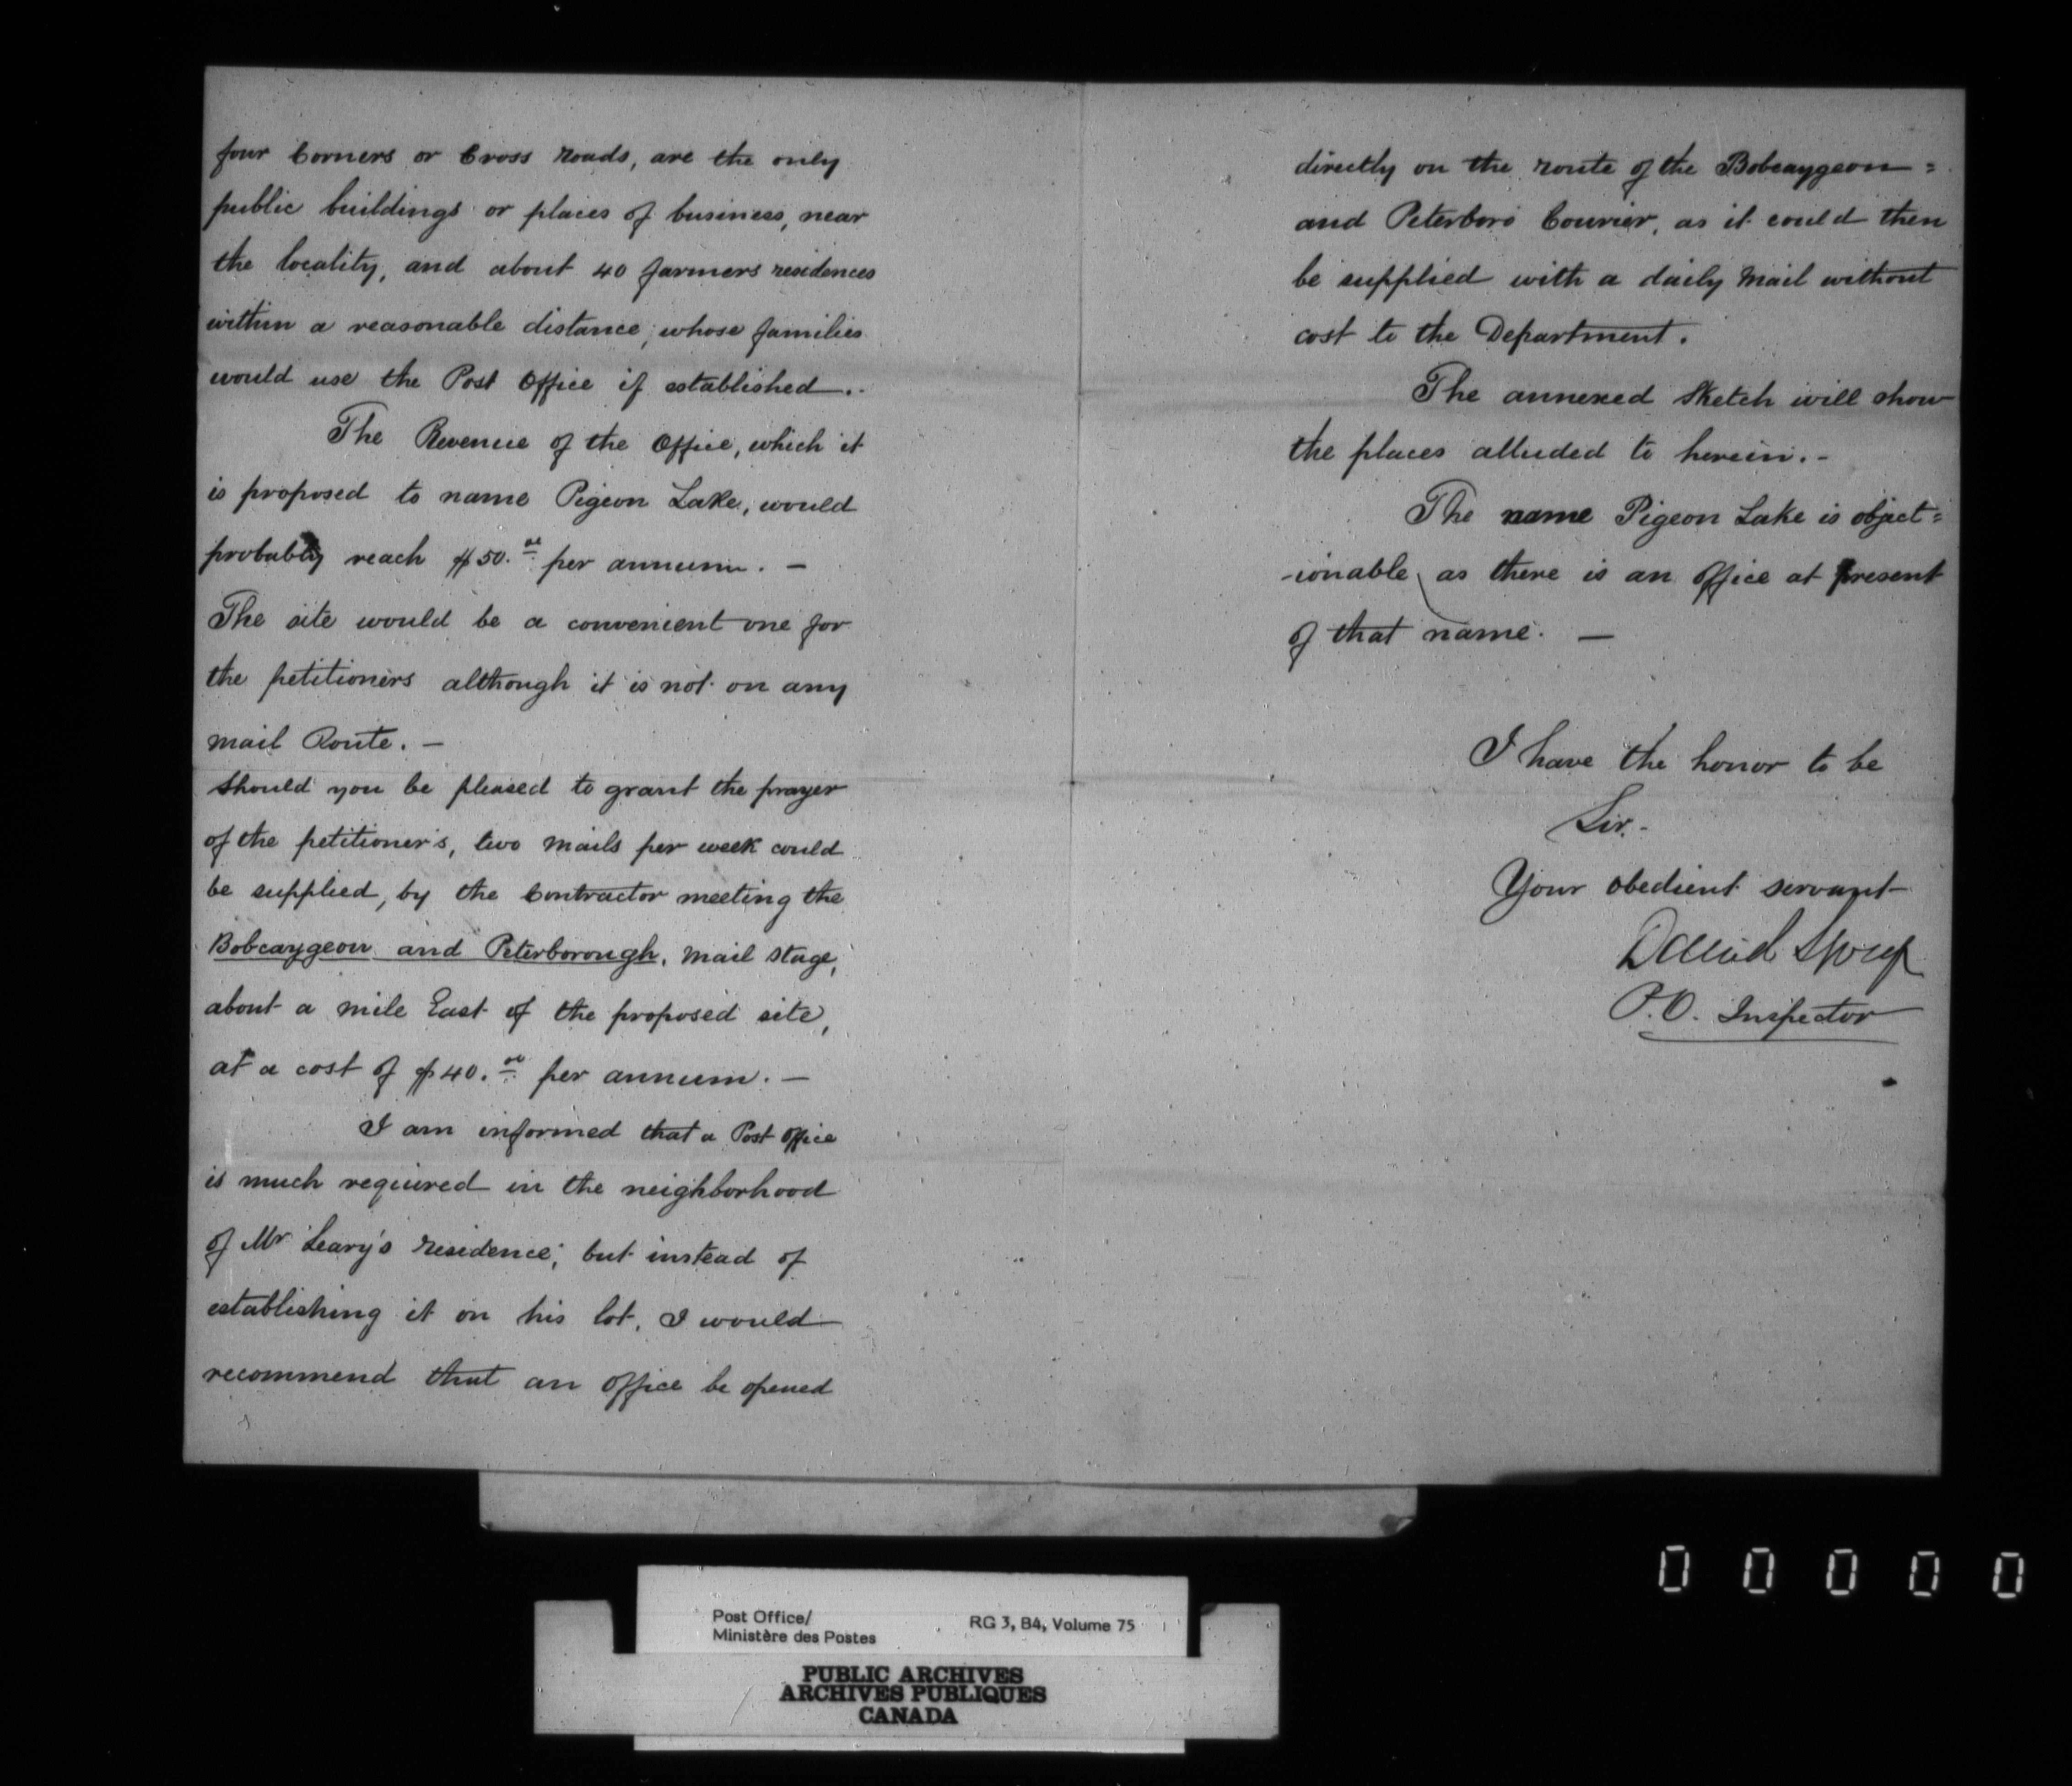 four Corners or Cross roads, are the only
public buildings or places of business, near
the locality, and about 40 farmers residences
within a reasonable distance, whose families
would use the Post Office if established.
The Revenue of the Office, which it
is proposed to name Pigeon Lake, would
probably reach $50.00 per annum. —
The site would be a convenient one for
the petitioners although it is not on any
mail Route. —
Should you be pleased to grant the prayer
of the petitioner's, two mails per week could
be supplied, by the Contractor meeting the
Bobcaygeon and Peterborough, mail stage,
about a mile East of the proposed site,
at a cost of $40.00 per annum. —
I am informed that a Post Office
is much required in the neighborhood
of Mr Leary's residence; but instead of
establishing it on his lot, I would
recommend that an office be opened
directly on the route of the Bobcaygeon =
and Peterboro Courier, as it could then
be supplied with a daily Mail without
cost to the Department.
The annexed Sketch will show
the places alluded to herein. -
The name Pigeon Lake is object=
-ionable as there is an office at present
of that name. —
I have the honor to be
Sir. -
Your obedient servant
David
P.O. Inspector
0 0 0 0 0
Post Office/ RG 3, B4, Volume 75
Ministère des Postes
PUBLIC ARCHIVES
ARCHIVES PUBLIQUES
CANADA